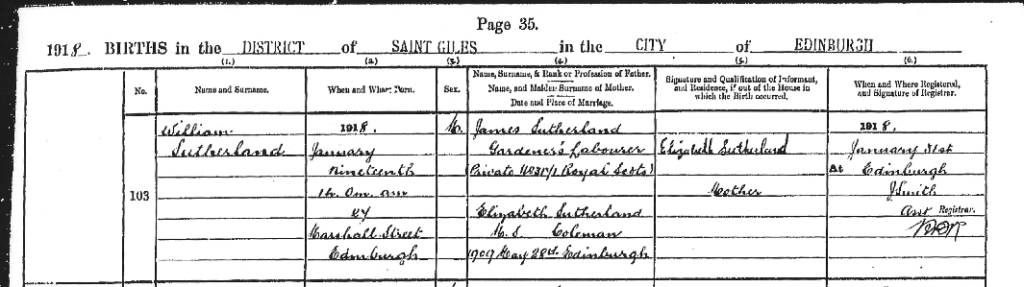 Page 35.
1918. BIRTHS in the DISTRICT of SAINT GILES in the CITY of EDINBURGH
(1.) (2.) (3.) (4.) (5.) (6.)
No.
Name and Surname.
When and Where Born.
Sex.
Name, Surname, & Rank or Profession of Father.
Name, and Maiden Surname of Mother.
Date and Place of Marriage.
Signature and Qualification of Informant,
and Residence, if out of the House in
which the Birth occurred.
When and Where Registered,
and Signature of Registrar.
103
William
Sutherland
1918.
January
Nineteenth
1h. 0m. AM
Marshall Street
Edinburgh
M.
James Sutherland
Gardener's Labourer
(Private Royal Scots)
Elizabeth Sutherland
M.S. Coleman
1909 May 28th Edinburgh
Elizabeth Sutherland
Mother
1918.
January 31st
At Edinburgh
J Smith
Asst Registrar.